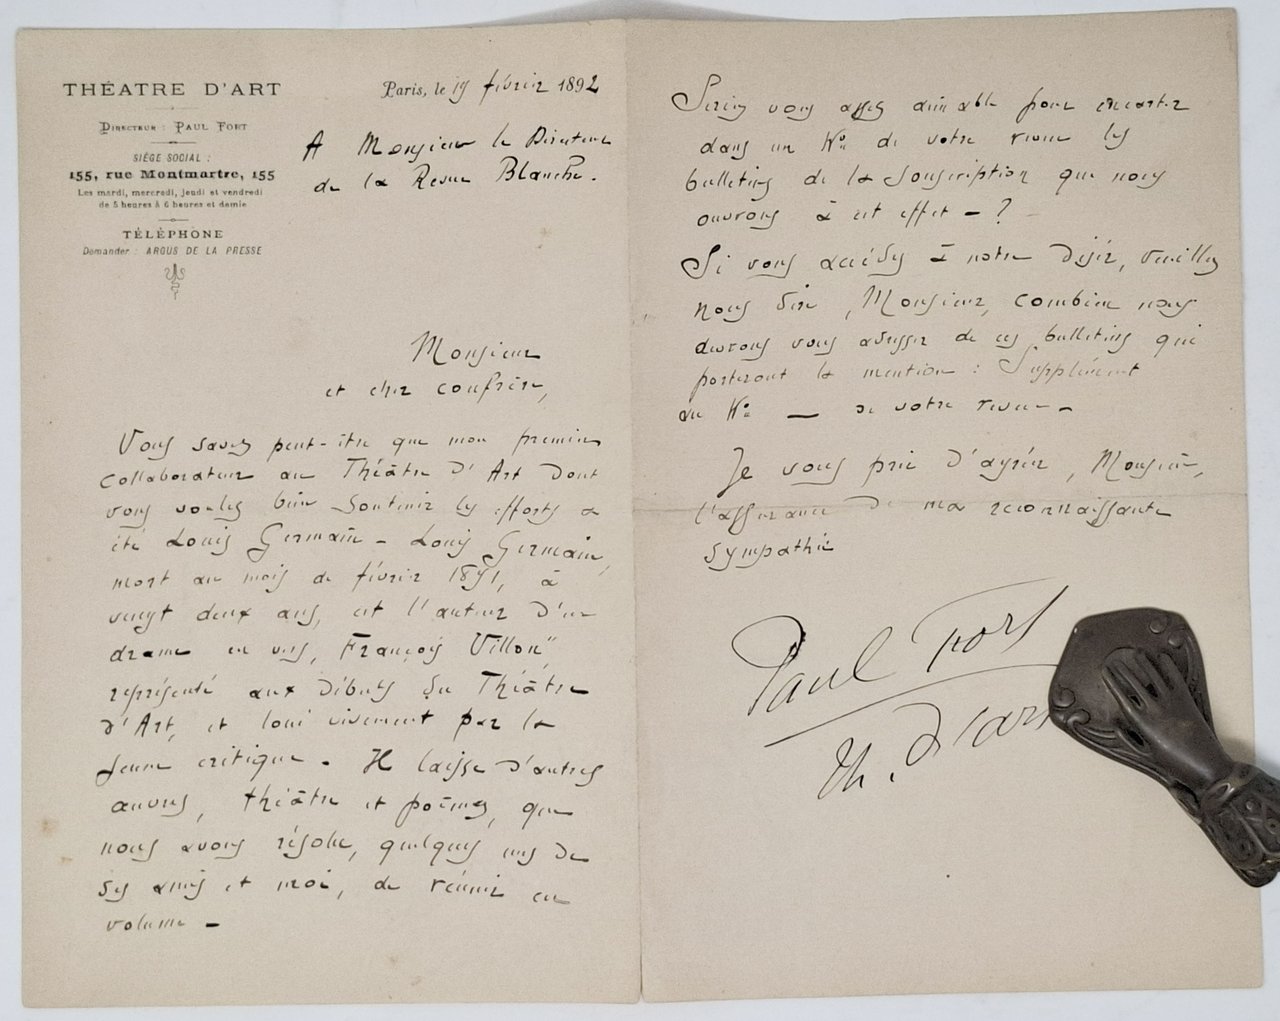 THÉATRE D'ART
DIRECTEUR : PAUL FORT
SIÉGE SOCIAL :
155, rue Montmartre, 155
Les mardi, mercredi, jeudi et vendredi
de 5 heures à 6 heures et demie
TÉLÉPHONE
Demander : ARGUS DE LA PRESSE
Paris, le 19 février 1892
A Monsieur le Directeur
de la Revue Blanche.
Monsieur
et cher confrère,
Vous savez peut-être que mon premier
collaborateur au Théâtre d'Art dont
vous voulez bien soutenir les efforts a
été Louis Germain - Louis Germain,
mort au mois de février 1891, à
vingt deux ans, est l'auteur d'un
drame en vers, François Villon"
représenté aux débuts du Théâtre
d'Art, et loué vivement par la
jeune critique. Il laisse d'autres
œuvres, théâtre et poèmes, que
nous avons résolu, quelques uns de
ses amis et moi, de réunir en
volume -
Seriez vous assez aimable pour encarter
dans un No de votre revue les
bulletins de la souscription que nous
ouvrons à cet effet - ?
Si vous accédez à notre désir, veuillez
nous dire, Monsieur, combien nous
devrons vous adresser de ces bulletins qui
porteront la mention : Supplément
au No — de votre revue -
Je vous prie d'agréer, Monsieur,
l'assurance de ma reconnaissante
sympathie
Paul Fort
Th. d'art